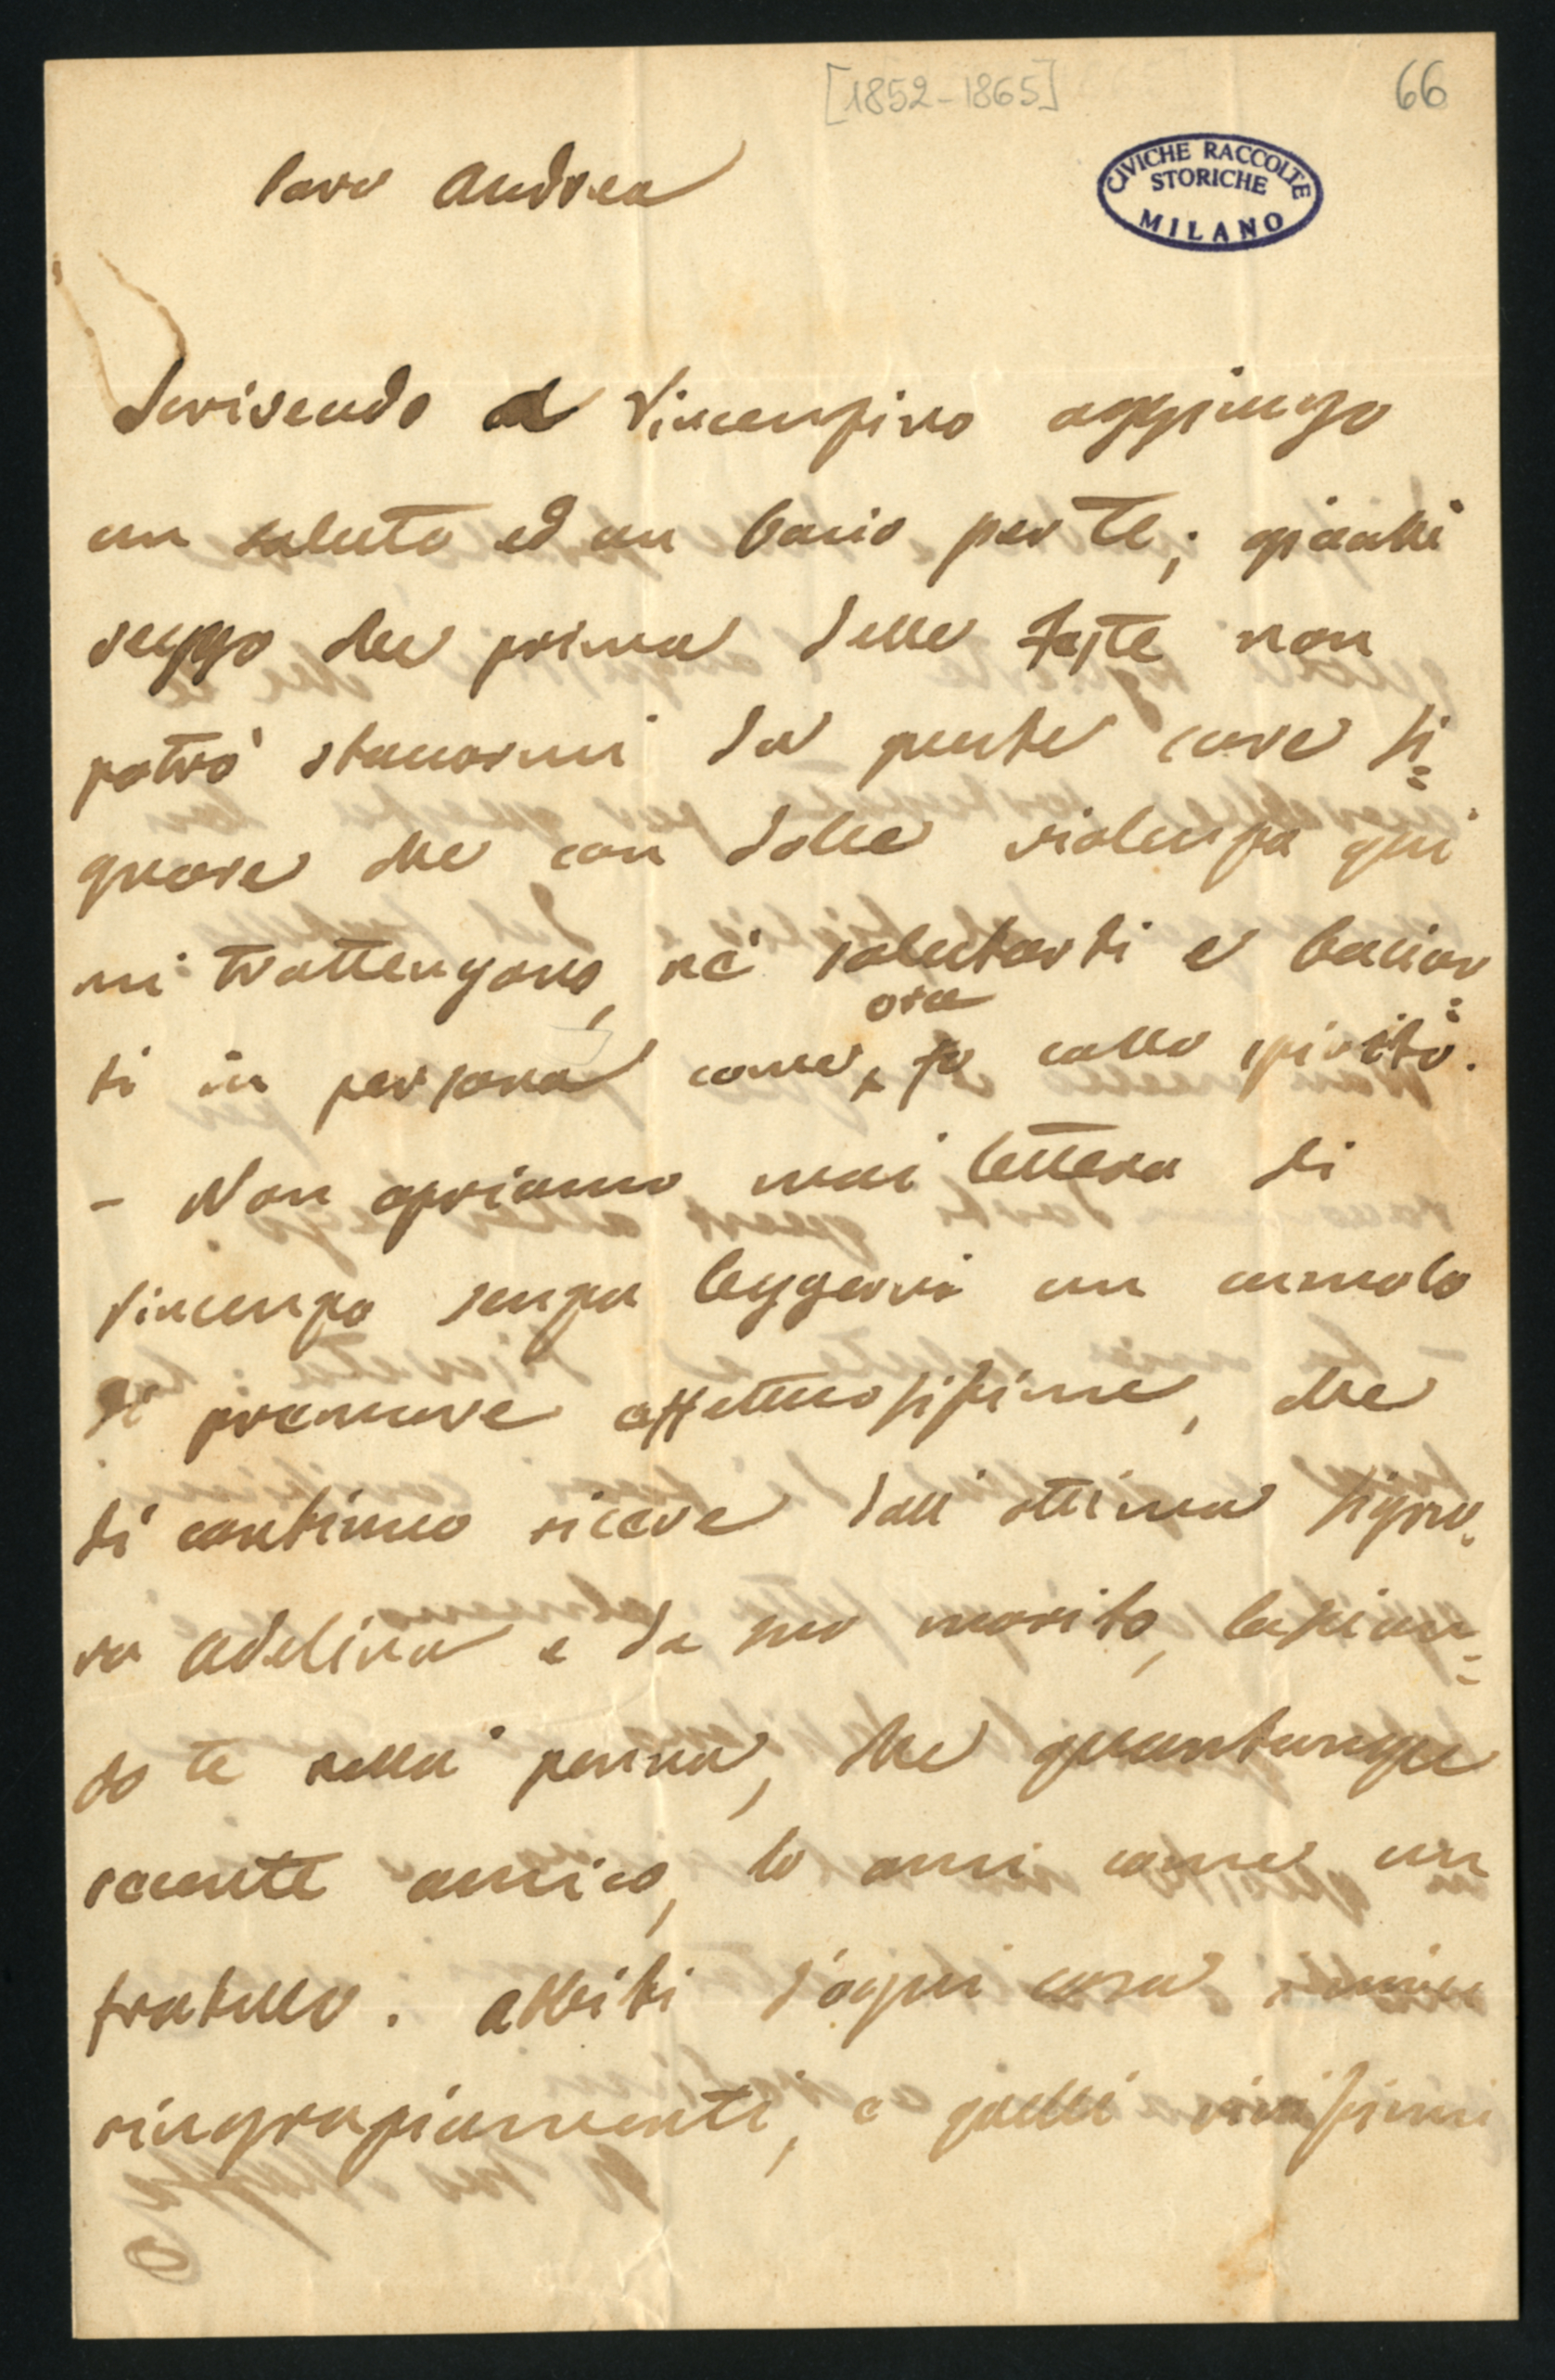 [1852-1865]
66
CIVICHE RACCOLTE
STORICHE
MILANO
Caro Andrea
Scrivendo a Vincenzino aggiungo
un saluto ed un bacio per te; giacchè
veggo che prima delle feste non
potrò staccarmi da queste care Si=
gnore che con dolce violenza qui
mi trattengono, nè salutarti e baciar=
ti in persona come ora fo collo spirito.
- Non apriamo mai lettera di
Vincenzo senza leggervi un cumolo
di premure affettuosissime, che
di continuo riceve dall'ottima Signo=
ra Adelina e da suo marito, lascian=
do te nella penna, che quantunque
recente amico, lo ami come un
fratello. Abbiti d'ogni cosa i miei
ringraziamenti, e quelli vivissimi